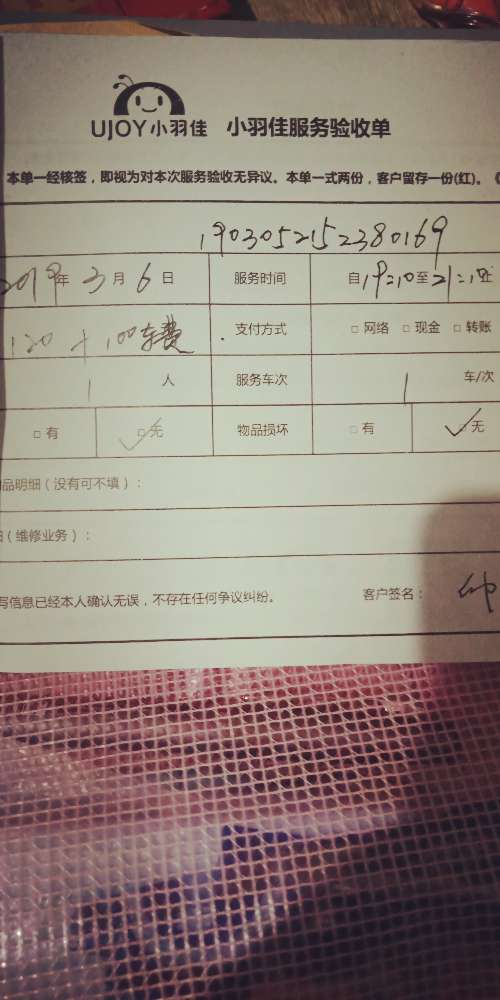 UJOY小羽佳 小羽佳服务验收单
本单一经核签，即视为对本次服务验收无异议。本单一式两份，客户留存一份(红)。
1903052152380169
2019年3月6日 服务时间 自19:10至21:10止
120+100车费 支付方式 □网络 □现金 □转账
1人 服务车次 1车/次
□有 □无 物品损坏 □有 □无
品明细（没有可不填）：
（维修业务）：
写信息已经本人确认无误，不存在任何争议纠纷。 客户签名：